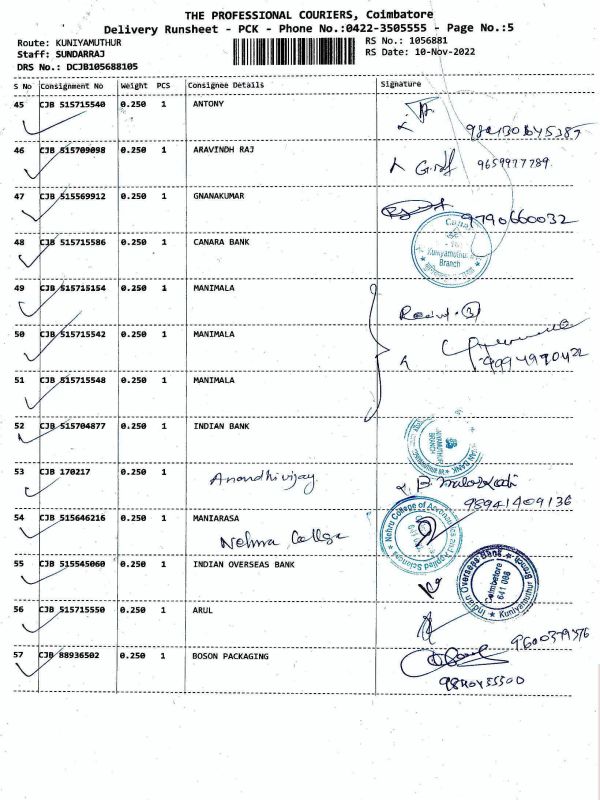 THE PROFESSIONAL COURIERS, Coimbatore
Delivery Runsheet - PCK - Phone No.:0422-3505555 - Page No.:5
Route: KUNIYAMUTHUR RS No.: 1056881
Staff: SUNDARRAJ RS Date: 10-Nov-2022
DRS No.: DCJB105688105
S No Consignment No Weight PCS Consignee Details Signature
45 CJB 515715540 0.250 1 ANTONY
46 CJB 515709098 0.250 1 ARAVINDH RAJ 9659977789.
47 CJB 515569912 0.250 1 GNANAKUMAR 9790660032
48 CJB 515715586 0.250 1 CANARA BANK
Kuniyamuthur
Branch
49 CJB 515715154 0.250 1 MANIMALA
50 CJB 515715542 0.250 1 MANIMALA
51 CJB 515715548 0.250 1 MANIMALA
52 CJB 515704877 0.250 1 INDIAN BANK
53 CJB 170217 0.250 1 Anandhi vijay.
98941409136
54 CJB 515646216 0.250 1 MANIARASA
Nehru College
Nehru College of Aeronautics and Applied Sciences
55 CJB 515545060 0.250 1 INDIAN OVERSEAS BANK
Indian Overseas Bank Kuniyamuthur Branch
Coimbatore
641 008
56 CJB 515715550 0.250 1 ARUL 9600379376
57 CJB 88936502 0.250 1 BOSON PACKAGING